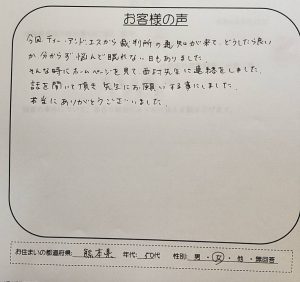 お客様の声
今回 ティー・アンド・エスから裁判所の通知が来て、どうしたら良い
か分からず悩んで眠れない日もありました。
そんな時にホームページを見て、西上先生に連絡をしました。
話を聞いて頂き 先生にお願いする事にしました。
本当にありがとうございました。
お住まいの都道府県: 熊本県 年代: 50代 性別: 男 ・ 女 ・ 他 ・ 無回答